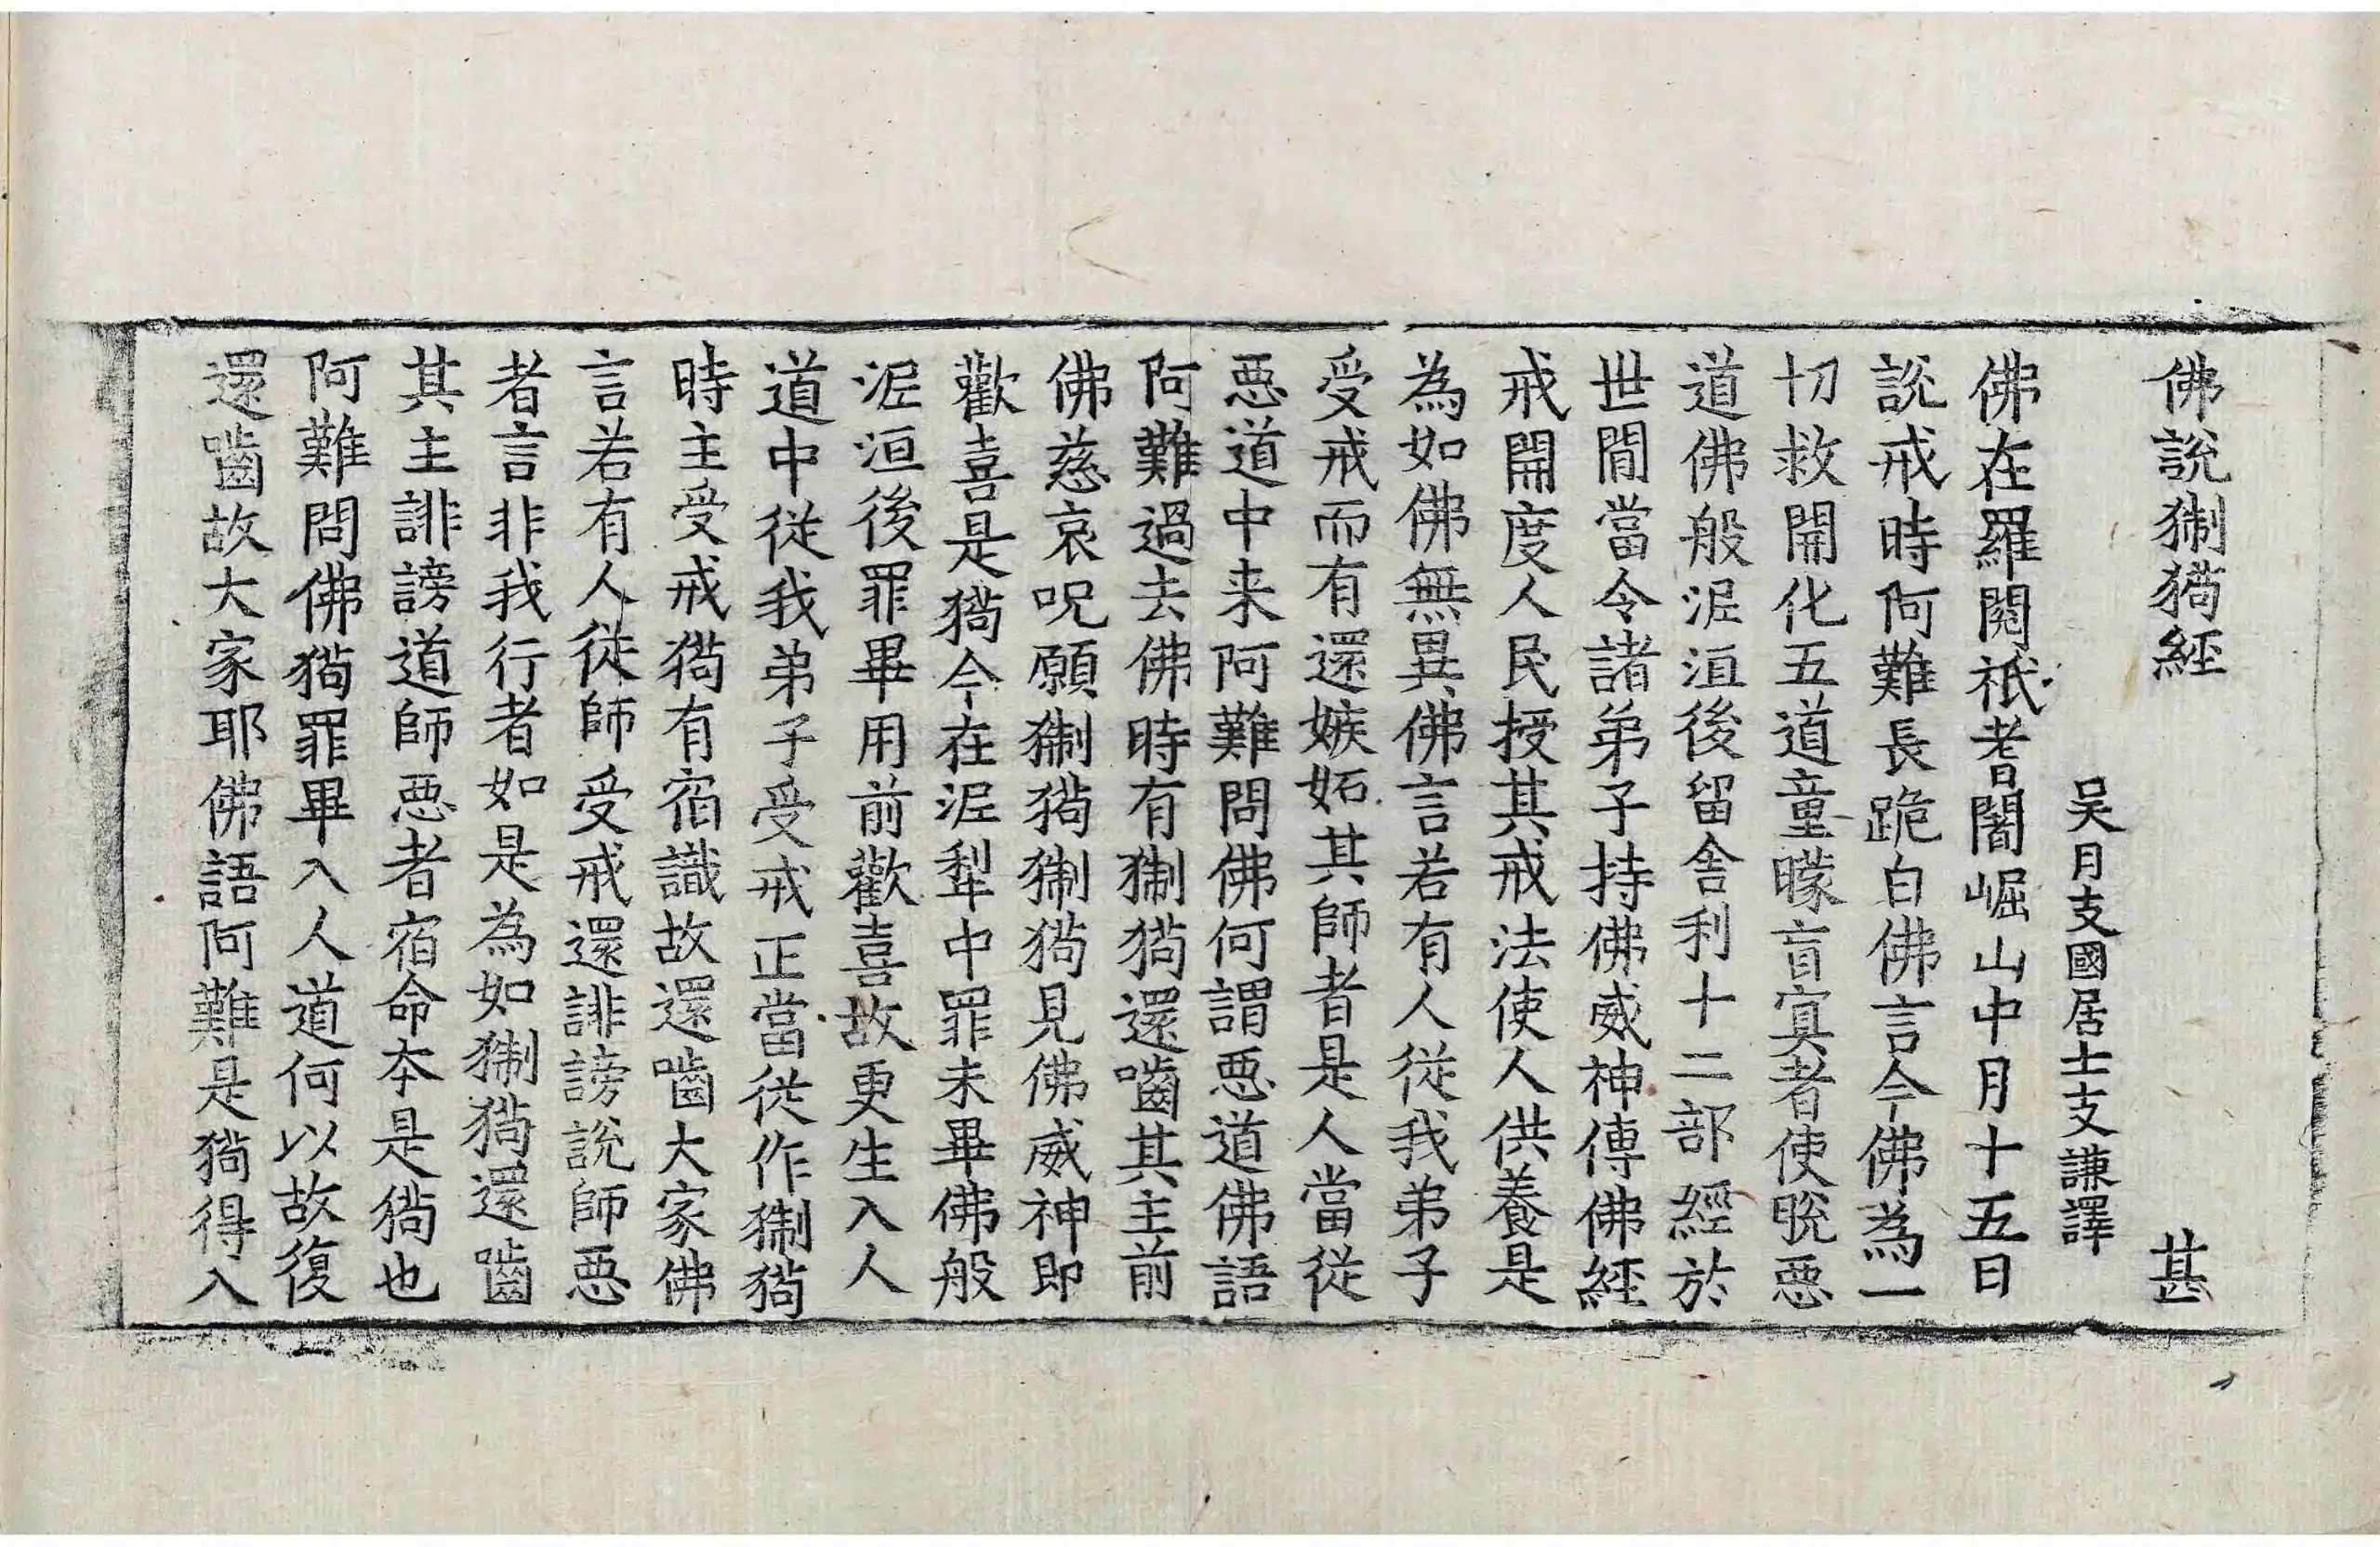 佛說猘㺃經 甚
吴月支國居士支謙譯
佛在羅閱祇耆闍崛山中月十五日
說戒時阿難長跪白佛言今佛為一
切救開化五道童曚盲寘者使脫惡
道佛般泥洹後留舍利十二部經於
世間當令諸弟子持佛威神傳佛經
戒開度人民授其戒法使人供養是
為如佛無異佛言若有人從我弟子
受戒而有還嫉妬其師者是人當從
惡道中来阿難問佛何謂惡道佛語
阿難過去佛時有猘㺃還嚙其主前
佛慈哀呪願猘㺃猘㺃見佛威神即
歡喜是㺃今在泥犁中罪未畢佛般
泥洹後罪畢用前歡喜故更生入人
道中從我弟子受戒正當從作猘㺃
時主受戒㺃有宿識故還嚙大家佛
言若有人從師受戒還誹謗說師惡
者言非我行者如是為如猘㺃還嚙
其主誹謗道師惡者宿命本是㺃也
阿難問佛㺃罪畢入人道何以故復
還嚙故大家耶佛語阿難是㺃得入